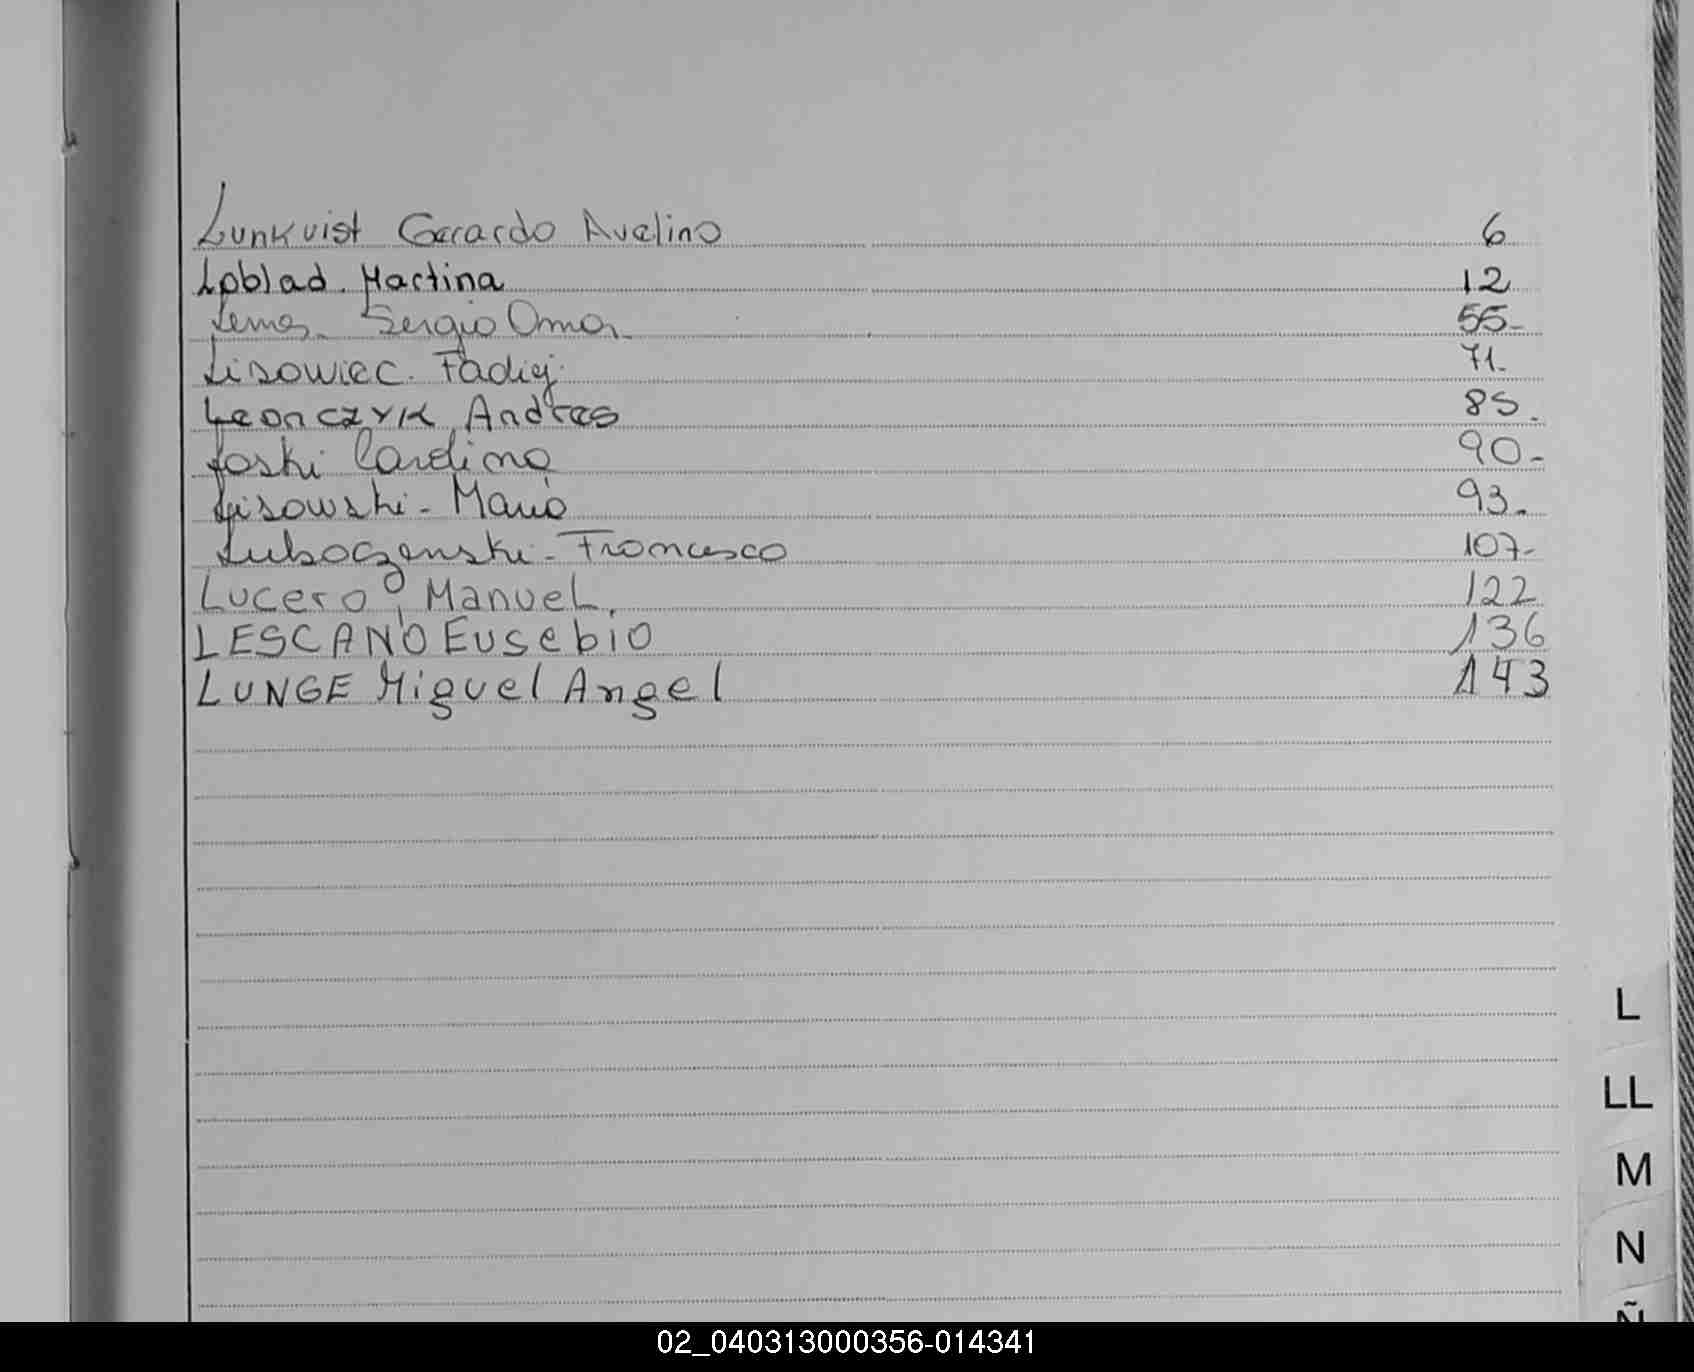 Lunkvist Gerardo Avelino 6
Loblad. Martina 12
Lemos Sergio Omar 55-
Lisowiec. Fadig. 71.
Leonczyk Andres 85.
Loski Carolina 90-
Lisowski - Mario 93.
Luboczenski - Francesco 107-
Lucero, Manuel. 122
LESCANO Eusebio 136
LUNGE Miguel Angel 143
L
LL
M
N
Ñ
02_040313000356-014341